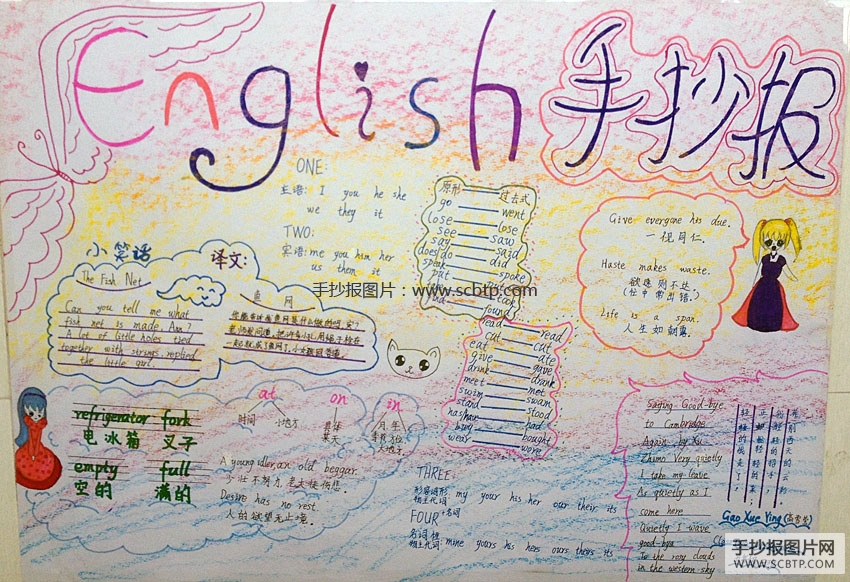 English 手抄报
ONE:
主语: I you he she
we they it
TWO:
宾语: me you him her
us them it
原形 过去式
go went
lose lose
see saw
say said
does/do did
speak spoke
put
took
found
read read
cut cut
eat ate
give gave
drink drank
meet met
swim swam
stand stood
has/have had
buy bought
wear wore
Give everyone his due.
一视同仁。
Haste makes waste.
欲速则不达。
(忙中带出错.)
Life is a span.
人生如朝露。
小笑话
The Fish Net
Can you tell me what
fish net is made, Ann?
A lot of little holes tied
together with strings, replied
the little girl.
译文:
鱼网
手抄报图片：www.scbtp.com
refrigerator fork
电冰箱 叉子
empty full
空的 满的
at on in
时间 小地方
具体
某天
月.年
季节.方位
大地方
A young idler, an old beggar.
少壮不努力,老大徒伤悲.
Desire has no rest.
人的欲望无止境.
THREE
形容词形
物主代词 my your his her our their its
FOUR
名词性
物主代词: mine yours his hers ours theirs its
Saying Good-bye
to Cambridge
Again by Xu
Zhimo Very quietly
I take my leave
As quietly as I
come here
Quietly I wave
good-bye
To the rosy clouds
in the western sky
Gao Xue Ying
手抄报图片网
WWW.SCBTP.COM